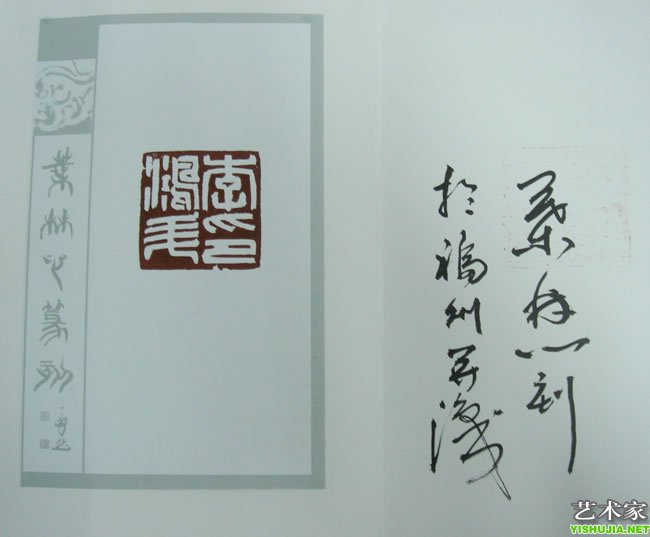 葉林心篆刻
李印
葉林心刻
於福州并識
艺术家
YISHUJIA.NET